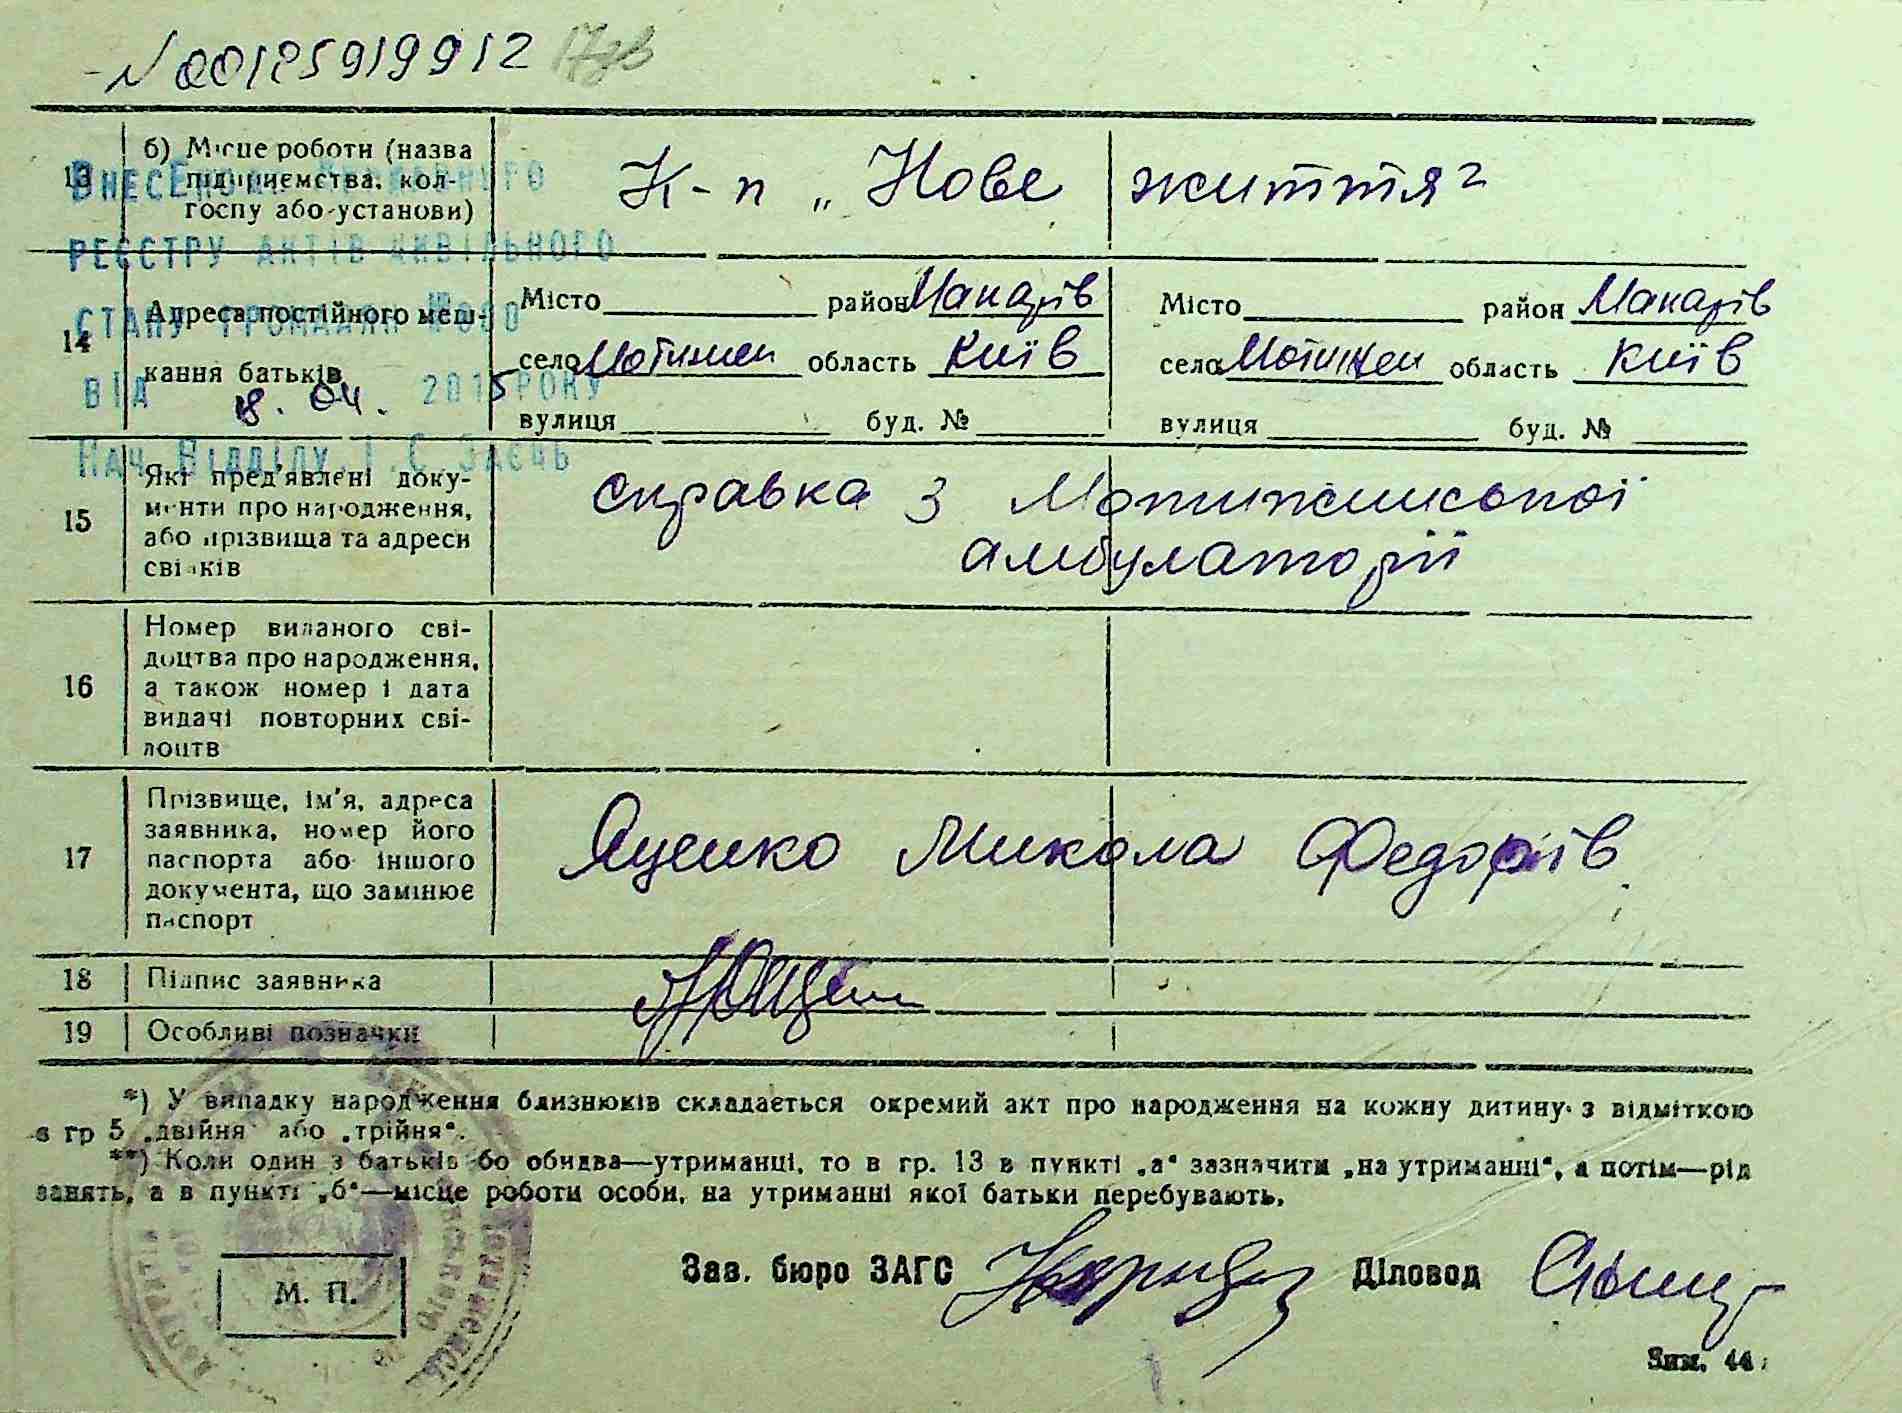 N 00125919912
13 б) Місце роботи (назва підприємства, колгоспу або установи)
К-п „Нове життя"
Внесено до Державного
реєстру актів цивільного
стану громадян
від 18. 04. 2015 року
Нач. відділу І.С. Заєць
14 Адреса постійного мешкання батьків
Місто район Макарів
село Мотижен область Київ
вулиця буд. №
Місто район Макарів
село Мотижен область Київ
вулиця буд. №
15 Які пред'явлені документи про народження, або прізвища та адреси свідків
справка з Мотижинської
амбулаторії
16 Номер виданого свідоцтва про народження, а також номер і дата видачі повторних свідоцтв
17 Прізвище, ім'я, адреса заявника, номер його паспорта або іншого документа, що замінює паспорт
Яценко Микола Федорів
18 Підпис заявника
19 Особливі позначки
*) У випадку народження близнюків складається окремий акт про народження на кожну дитину з відміткою
в гр 5 „двійня" або „трійня".
**) Коли один з батьків бо обидва—утриманці, то в гр. 13 в пункті „а" зазначити „на утриманні", а потім—рід
занять, а в пункті „б"—місце роботи особи, на утриманні якої батьки перебувають.
М. П.
Зав. бюро ЗАГС
Діловод
Зим. 44